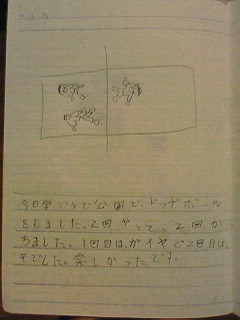 今日学どうで公園で、ドッヂボール
をしました。2回やって、2回か
ちました。1回目は、がイヤで2回目は、
中でした。楽しかったです。